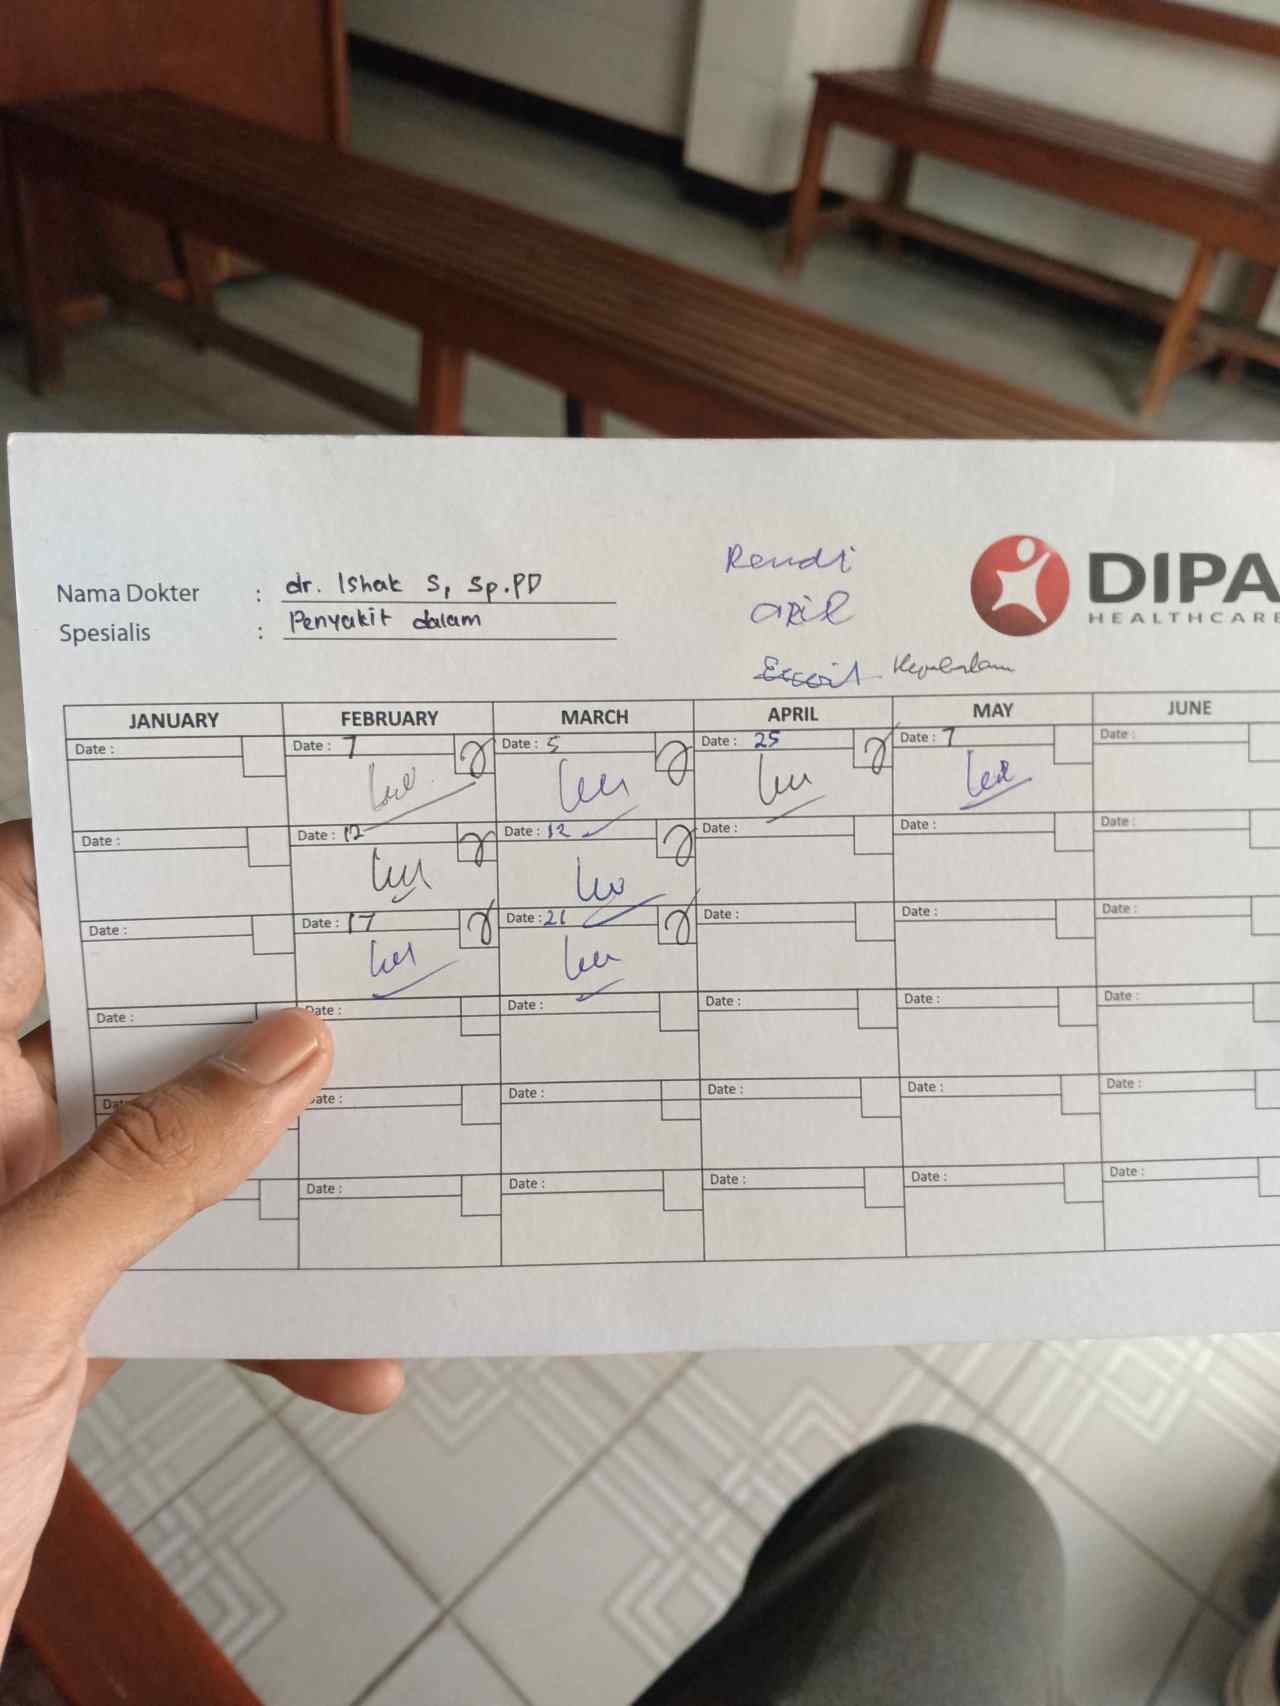 Rendi
Nama Dokter : dr. Ishak S, Sp.PD
DIPA
HEALTHCARE
Spesialis : Penyakit dalam
JANUARY FEBRUARY MARCH APRIL MAY JUNE
Date : Date : 7 Date : 5 Date : 25 Date : 7 Date :
Date : Date : 12 Date : 12 Date : Date : Date :
Date : Date : 17 Date : 21 Date : Date : Date :
Date : Date : Date : Date : Date : Date :
Date : Date : Date : Date : Date :
Date : Date : Date : Date : Date :